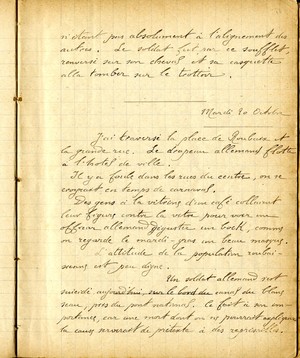 n'étant pas absolument à l'alignement des
autres. Le soldat fut par ce soufflet,
renversé sur son cheval et sa casquette
alla tomber sur le trottoir.
Mardi 20 Octobre
J'ai traversé la place de Roubaix et
la grande rue. Le drapeau allemand flotte
à l'hôtel de ville.
Il y a foule dans les rues du centre, on se
croirait en temps de carnaval.
Des gens à la vitrine d'un café collaient
leur figure contre la vitre pour voir un
officier allemand siroter un bock, comme
on regarde le mardi-gras un beau masque.
L'attitude de la population roubai-
sienne est peu digne.
Un soldat allemand s'est
suicidé aujourd'hui, sur le bord du canal du blanc
seau, près du pont national. Le fait a son im-
portance, car une mort dont on ne pourrait expliquer
la cause servirait de prétexte à des représailles.